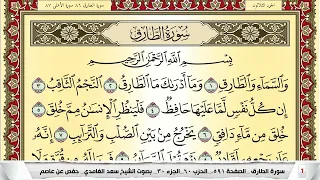 الجزء الثلاثون
سورة الطارق ٨٦ سورة الأعلى ٨٧
سُورَةُ الطَّارِقِ
بِسْمِ اللَّهِ الرَّحْمَٰنِ الرَّحِيمِ
وَالسَّمَاءِ وَالطَّارِقِ ١ وَمَا أَدْرَاكَ مَا الطَّارِقُ ٢ النَّجْمُ الثَّاقِبُ ٣
إِن كُلُّ نَفْسٍ لَّمَّا عَلَيْهَا حَافِظٌ ٤ فَلْيَنظُرِ الْإِنسَانُ مِمَّ خُلِقَ ٥
خُلِقَ مِن مَّاءٍ دَافِقٍ ٦ يَخْرُجُ مِن بَيْنِ الصُّلْبِ وَالتَّرَائِبِ ٧
سورة الطارق . الصفحة ٥٩١ . الحزب ٦٠ . الجزء ٣٠ . بصوت الشيخ سعد الغامدي . حفص عن عاصم
1